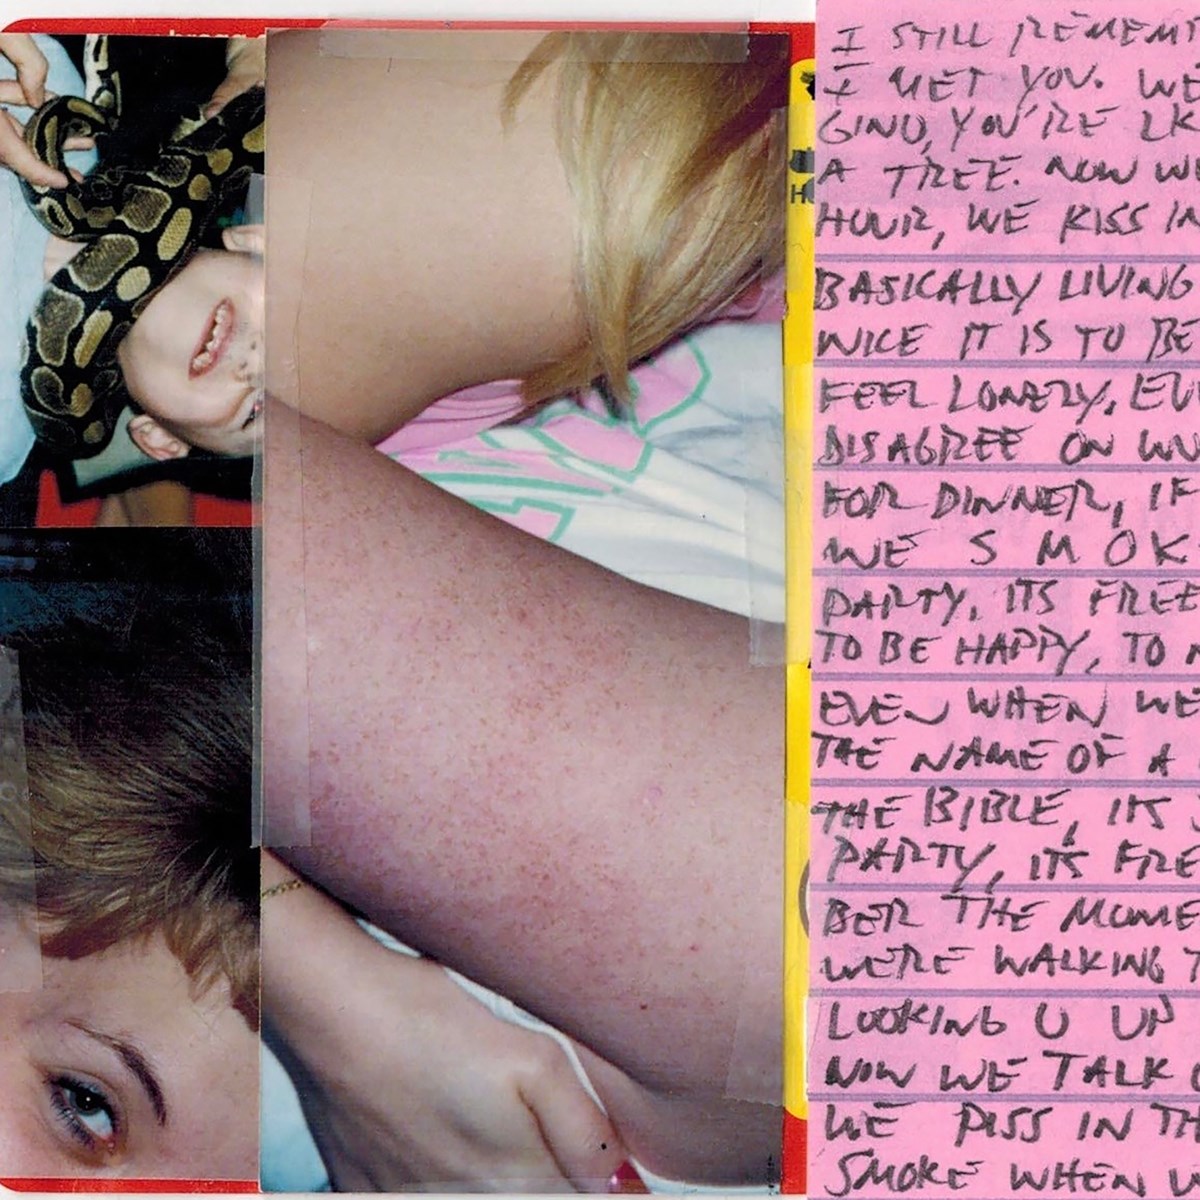 I STILL REMEM
I MET YOU. WE
GINO, YOU'RE LK
A TREE. NOW WE
HOUR, WE KISS IN
BASICALLY LIVING
NICE IT IS TO BE
FEEL LONELY, EV
DISAGREE ON
FOR DINNER, IF
WE SMOK
PARTY, ITS FREE
TO BE HAPPY, TO
EVEN WHEN WE
THE NAME OF A
THE BIBLE, ITS
PARTY, ITS FRE
BER THE MOME
WE'RE WALKING T
LOOKING U UP
NOW WE TALK
WE PISS IN TH
SMOKE WHEN